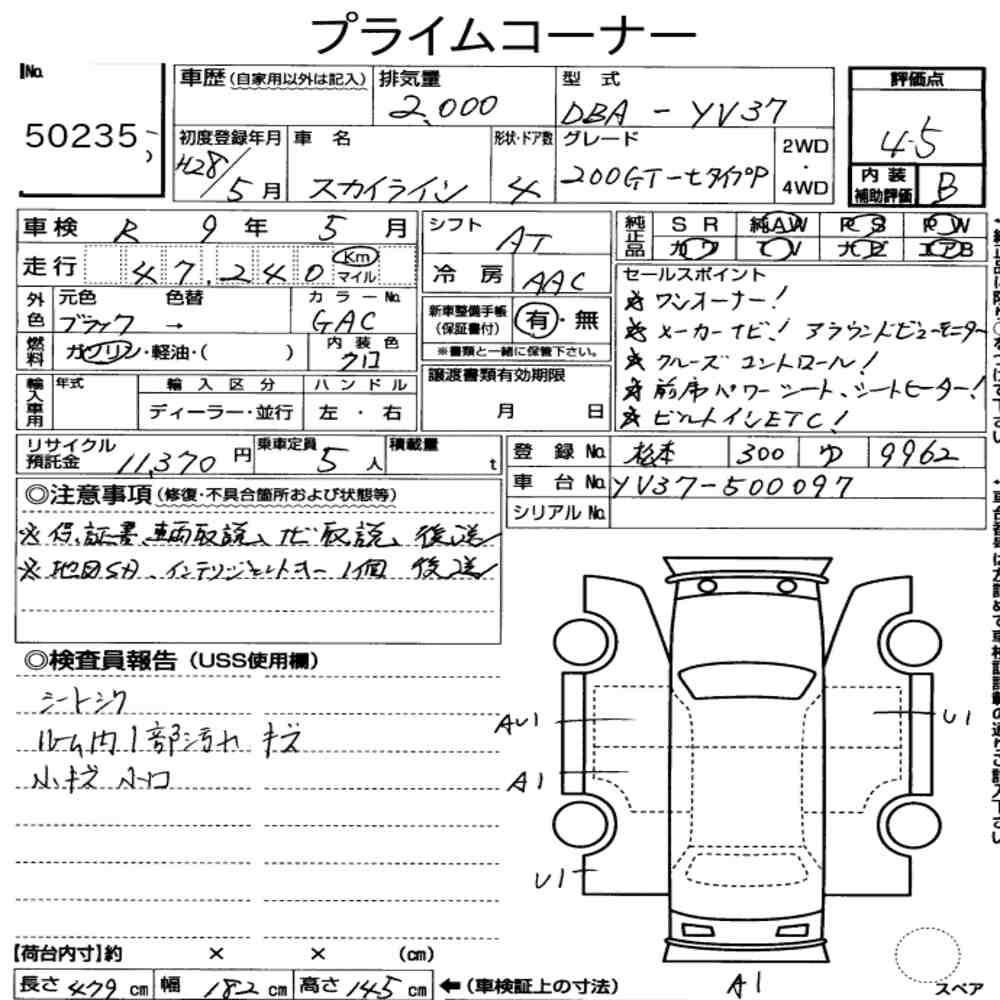 プライムコーナー
No. 50235
車歴(自家用以外は記入) 排気量 2,000 型式 DBA-YV37
評価点 4.5
内装補助評価 B
初度登録年月 H28/5月 車名 スカイライン 形状・ドア数 4 グレード 200GT-tタイプP 2WD・4WD
車検 R 9年 5月
シフト AT
純正品 SR 純AW PS PW
カワ TV ナビ エアB
走行 47,240 Km マイル
冷房 AAC
外色 元色 ブラック 色替 → カラーNo. GAC
新車整備手帳(保証書付) 有・無
※書類と一緒に保管下さい。
燃料 ガソリン・軽油・( ) 内装色 クロ
セールスポイント
☆ ワンオーナー!
☆ メーカーナビ! アラウンドビューモニター
☆ クルーズコントロール!
☆ 前席パワーシート、シートヒーター!
☆ ビルトインETC!
輸入車用 年式 輸入区分 ディーラー・並行 ハンドル 左・右
譲渡書類有効期限 月 日
リサイクル預託金 11,370円 乗車定員 5人 積載量 t
登録No. 300 ゆ 9962
車台No. YV37-500097
シリアルNo.
◎注意事項(修復・不具合箇所および状態等)
※ 保証書、車両取説、ナビ取説、後送
※ 地図SD、インテリジェントキー1個 後送
◎検査員報告(USS使用欄)
シートシワ
ルーム内1部汚れ キズ
小キズ 小凹
AU1
U1
A1
U1
A1
スペア
【荷台内寸】約 × × (cm)
長さ 479 cm 幅 182 cm 高さ 145 cm ←(車検証上の寸法)